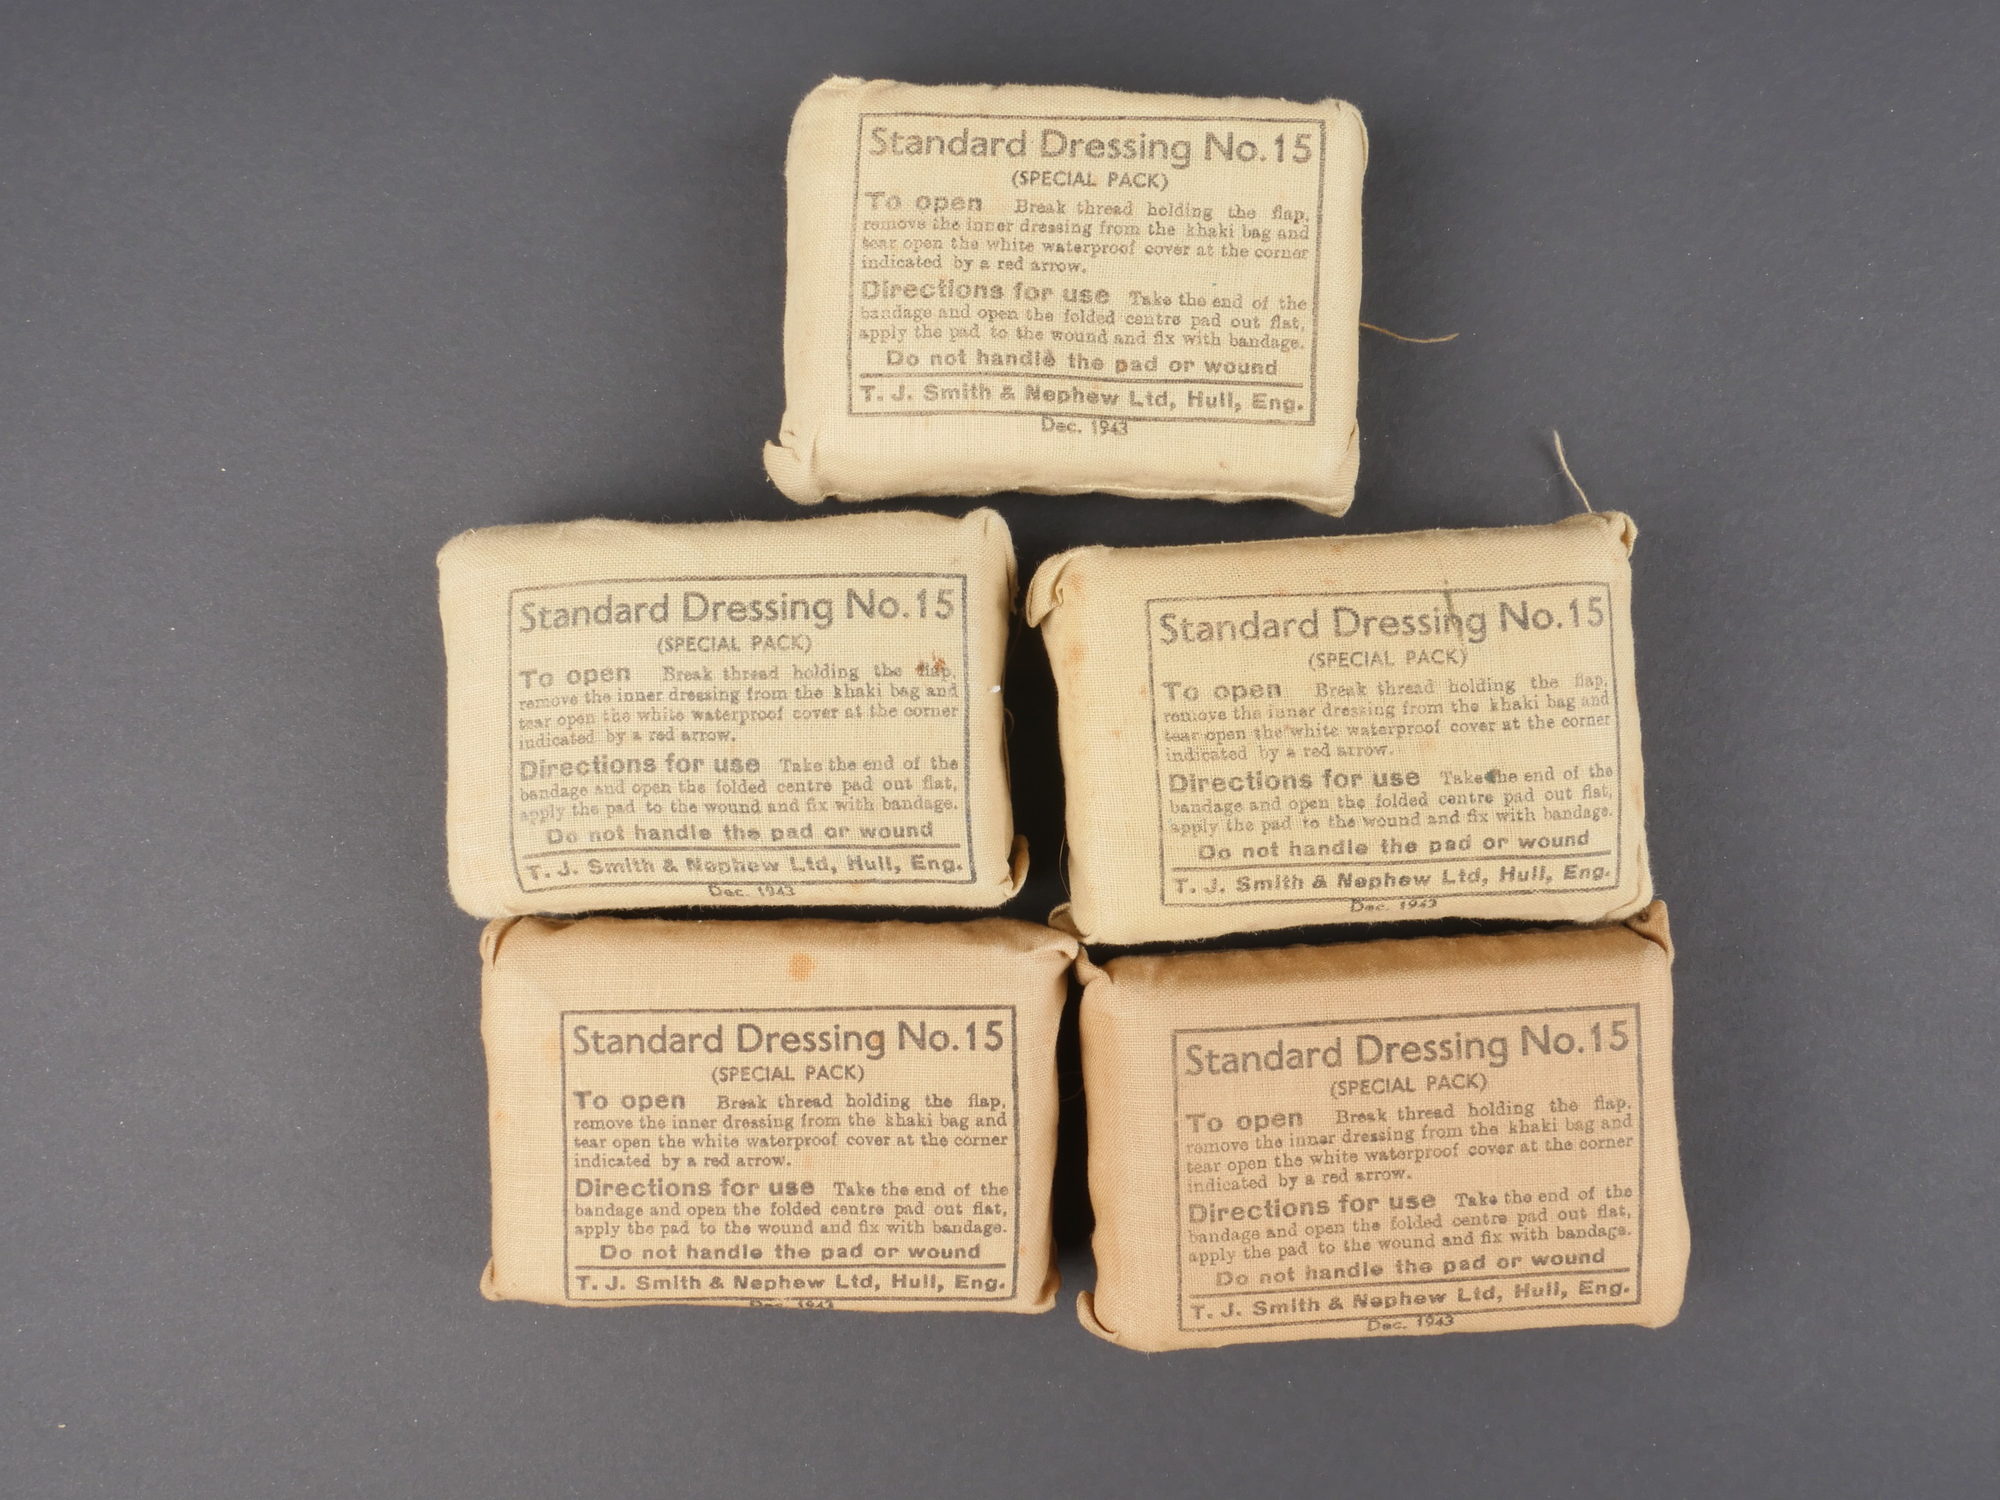 Standard Dressing No.15
(SPECIAL PACK)
To open Break thread holding the flap,
remove the inner dressing from the khaki bag and
tear open the white waterproof cover at the corner
indicated by a red arrow.
Directions for use Take the end of the
bandage and open the folded centre pad out flat,
apply the pad to the wound and fix with bandage.
Do not handle the pad or wound
T. J. Smith & Nephew Ltd, Hull, Eng.
Dec. 1943
Standard Dressing No.15
(SPECIAL PACK)
To open Break thread holding the flap,
remove the inner dressing from the khaki bag and
tear open the white waterproof cover at the corner
indicated by a red arrow.
Directions for use Take the end of the
bandage and open the folded centre pad out flat,
apply the pad to the wound and fix with bandage.
Do not handle the pad or wound
T. J. Smith & Nephew Ltd, Hull, Eng.
Dec. 1943
Standard Dressing No.15
(SPECIAL PACK)
To open Break thread holding the flap,
remove the inner dressing from the khaki bag and
tear open the white waterproof cover at the corner
indicated by a red arrow.
Directions for use Take the end of the
bandage and open the folded centre pad out flat,
apply the pad to the wound and fix with bandage.
Do not handle the pad or wound
T. J. Smith & Nephew Ltd, Hull, Eng.
Dec. 1943
Standard Dressing No.15
(SPECIAL PACK)
To open Break thread holding the flap,
remove the inner dressing from the khaki bag and
tear open the white waterproof cover at the corner
indicated by a red arrow.
Directions for use Take the end of the
bandage and open the folded centre pad out flat,
apply the pad to the wound and fix with bandage.
Do not handle the pad or wound
T. J. Smith & Nephew Ltd, Hull, Eng.
Dec. 1943
Standard Dressing No.15
(SPECIAL PACK)
To open Break thread holding the flap,
remove the inner dressing from the khaki bag and
tear open the white waterproof cover at the corner
indicated by a red arrow.
Directions for use Take the end of the
bandage and open the folded centre pad out flat,
apply the pad to the wound and fix with bandage.
Do not handle the pad or wound
T. J. Smith & Nephew Ltd, Hull, Eng.
Dec. 1943